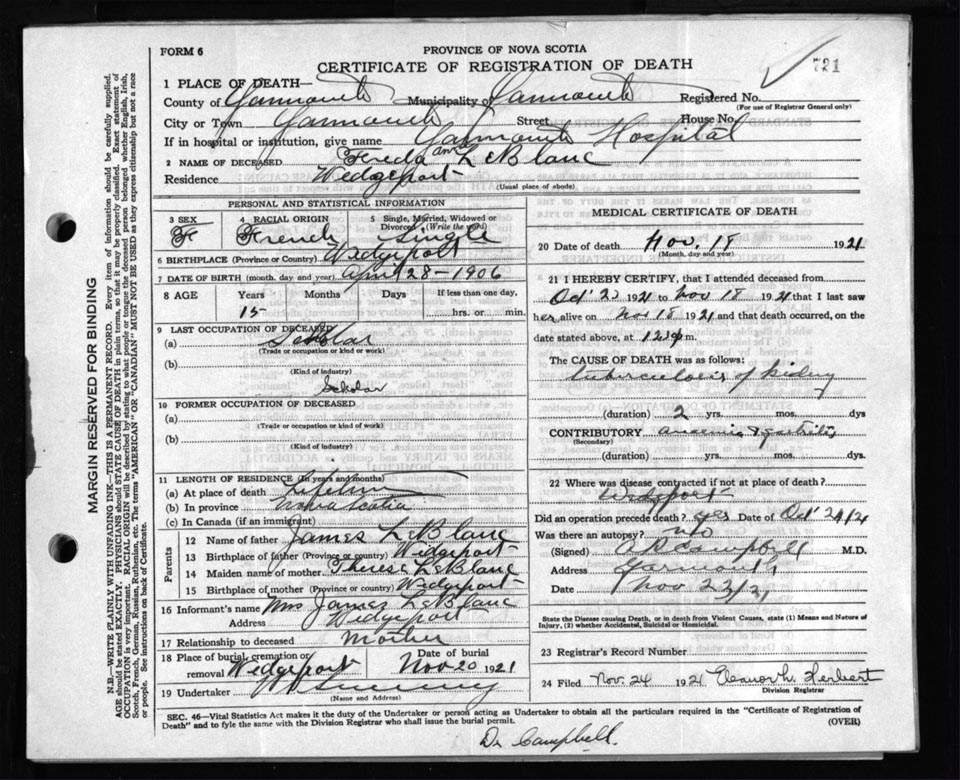 FORM 6
PROVINCE OF NOVA SCOTIA
CERTIFICATE OF REGISTRATION OF DEATH
721
1 PLACE OF DEATH—
County of Yarmouth Municipality of Yarmouth Registered No.
(For use of Registrar General only)
City or Town Yarmouth Street House No.
If in hospital or institution, give name Yarmouth Hospital
2 NAME OF DECEASED Freda ann LeBlanc
Residence Wedgeport
(Usual place of abode)
PERSONAL AND STATISTICAL INFORMATION
3 SEX 4 RACIAL ORIGIN 5 Single, Married, Widowed or Divorced (Write the word)
F French Single
6 BIRTHPLACE (Province or Country) Wedgeport
7 DATE OF BIRTH (month, day and year) April 28-1906
8 AGE Years Months Days If less than one day,
15 hrs. or min.
9 LAST OCCUPATION OF DECEASED
(a) Scholar
(Trade or occupation or kind or work)
(b)
(Kind of industry)
Scholar
10 FORMER OCCUPATION OF DECEASED
(a)
(Trade or occupation or kind of work)
(b)
(Kind of industry)
11 LENGTH OF RESIDENCE (In years and months)
(a) At place of death Lifetime
(b) In province Nova Scotia
(c) In Canada (if an immigrant)
Parents
12 Name of father James LeBlanc
13 Birthplace of father (Province or country) Wedgeport
14 Maiden name of mother Therese LeBlanc
15 Birthplace of mother (Province or country) Wedgeport
16 Informant's name Mrs James LeBlanc
Address Wedgeport
17 Relationship to deceased Mother
18 Place of burial, cremation or removal Wedgeport Date of burial Nov 20 1921
19 Undertaker
(Name and Address)
MEDICAL CERTIFICATE OF DEATH
20 Date of death Nov. 18 1921
(Month, day and year)
21 I HEREBY CERTIFY, that I attended deceased from
Oct 23 1921 to Nov 18 1921 that I last saw
her alive on Nov 18 1921 and that death occurred, on the
date stated above, at m.
The CAUSE OF DEATH was as follows:
tuberculosis of kidney
(duration) 2 yrs. mos. dys
CONTRIBUTORY anaemia &
(Secondary)
(duration) yrs. mos. dys.
22 Where was disease contracted if not at place of death?
Wedgeport
Did an operation precede death? yes Date of Oct 24/21
Was there an autopsy? no
(Signed) Campbell M.D.
Address Yarmouth
Date Nov 23/21
State the Disease causing Death, or in death from Violent Causes, state (1) Means and Nature of Injury, (2) whether Accidental, Suicidal or Homicidal.
23 Registrar's Record Number
24 Filed Nov. 24 1921 Herbert
Division Registrar
SEC. 46—Vital Statistics Act makes it the duty of the Undertaker or person acting as Undertaker to obtain all the particulars required in the "Certificate of Registration of
Death" and to fyle the same with the Division Registrar who shall issue the burial permit. (OVER)
Dr Campbell.
MARGIN RESERVED FOR BINDING
N.B.—WRITE PLAINLY WITH UNFADING INK—THIS IS A PERMANENT RECORD. Every item of information should be carefully supplied.
AGE should be stated EXACTLY. PHYSICIANS should STATE CAUSE OF DEATH in plain terms, so that it may be properly classified. Exact statement of
OCCUPATION is very important. RACIAL ORIGIN will be described by stating to what people or tongue the deceased person belonged whether English, Irish,
Scotch, French, German, Russian, Ruthenian, etc. The terms "AMERICAN" or "CANADIAN" MUST NOT BE USED as they express citizenship but not a race
or people. See instructions on back of Certificate.